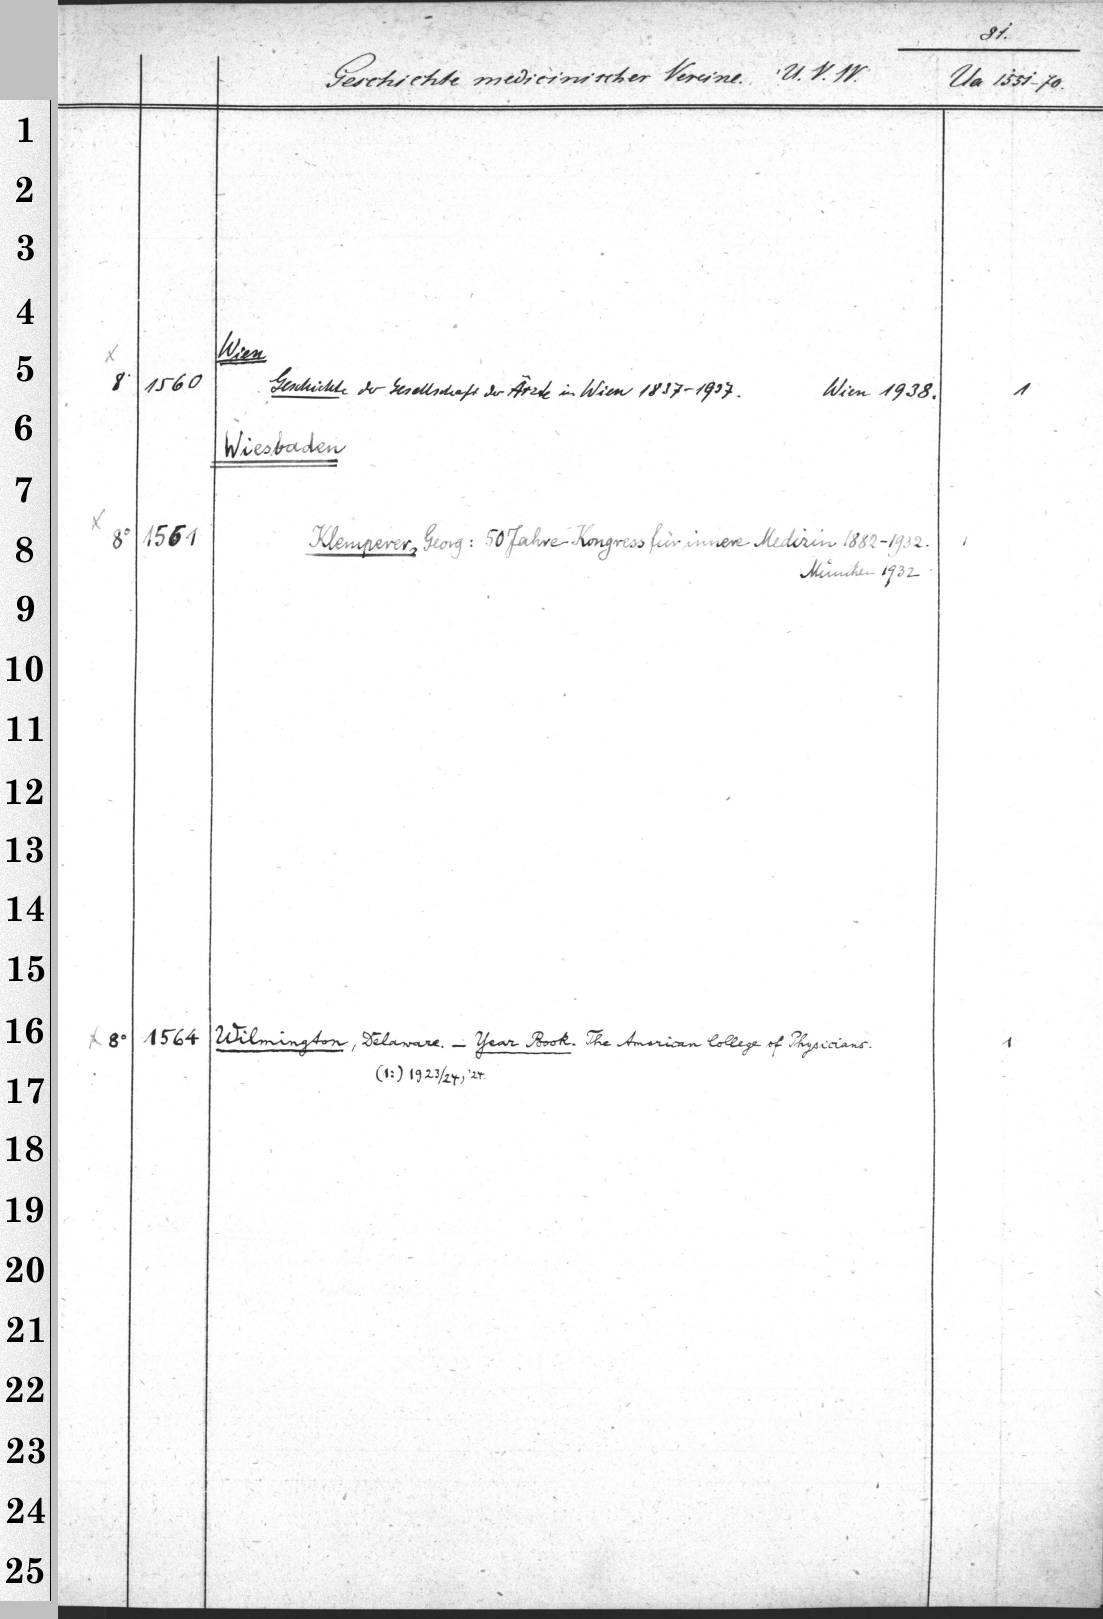 81.
Geschichte medicinischer Vereine. U. V. W. Ua 1551-70.
1
2
3
4
Wien
5 x 8° 1560 Geschichte der Gesellschaft der Ärzte in Wien 1837-1937. Wien 1938. 1
6
Wiesbaden
7
8 x 8° 1561 Klemperer, Georg: 50 Jahre Kongress für innere Medizin 1882-1932. 1
München 1932
9
10
11
12
13
14
15
16 x 8° 1564 Wilmington, Delaware. — Year Book. The American College of Physicians. 1
(1:) 1923/24, '24.
17
18
19
20
21
22
23
24
25